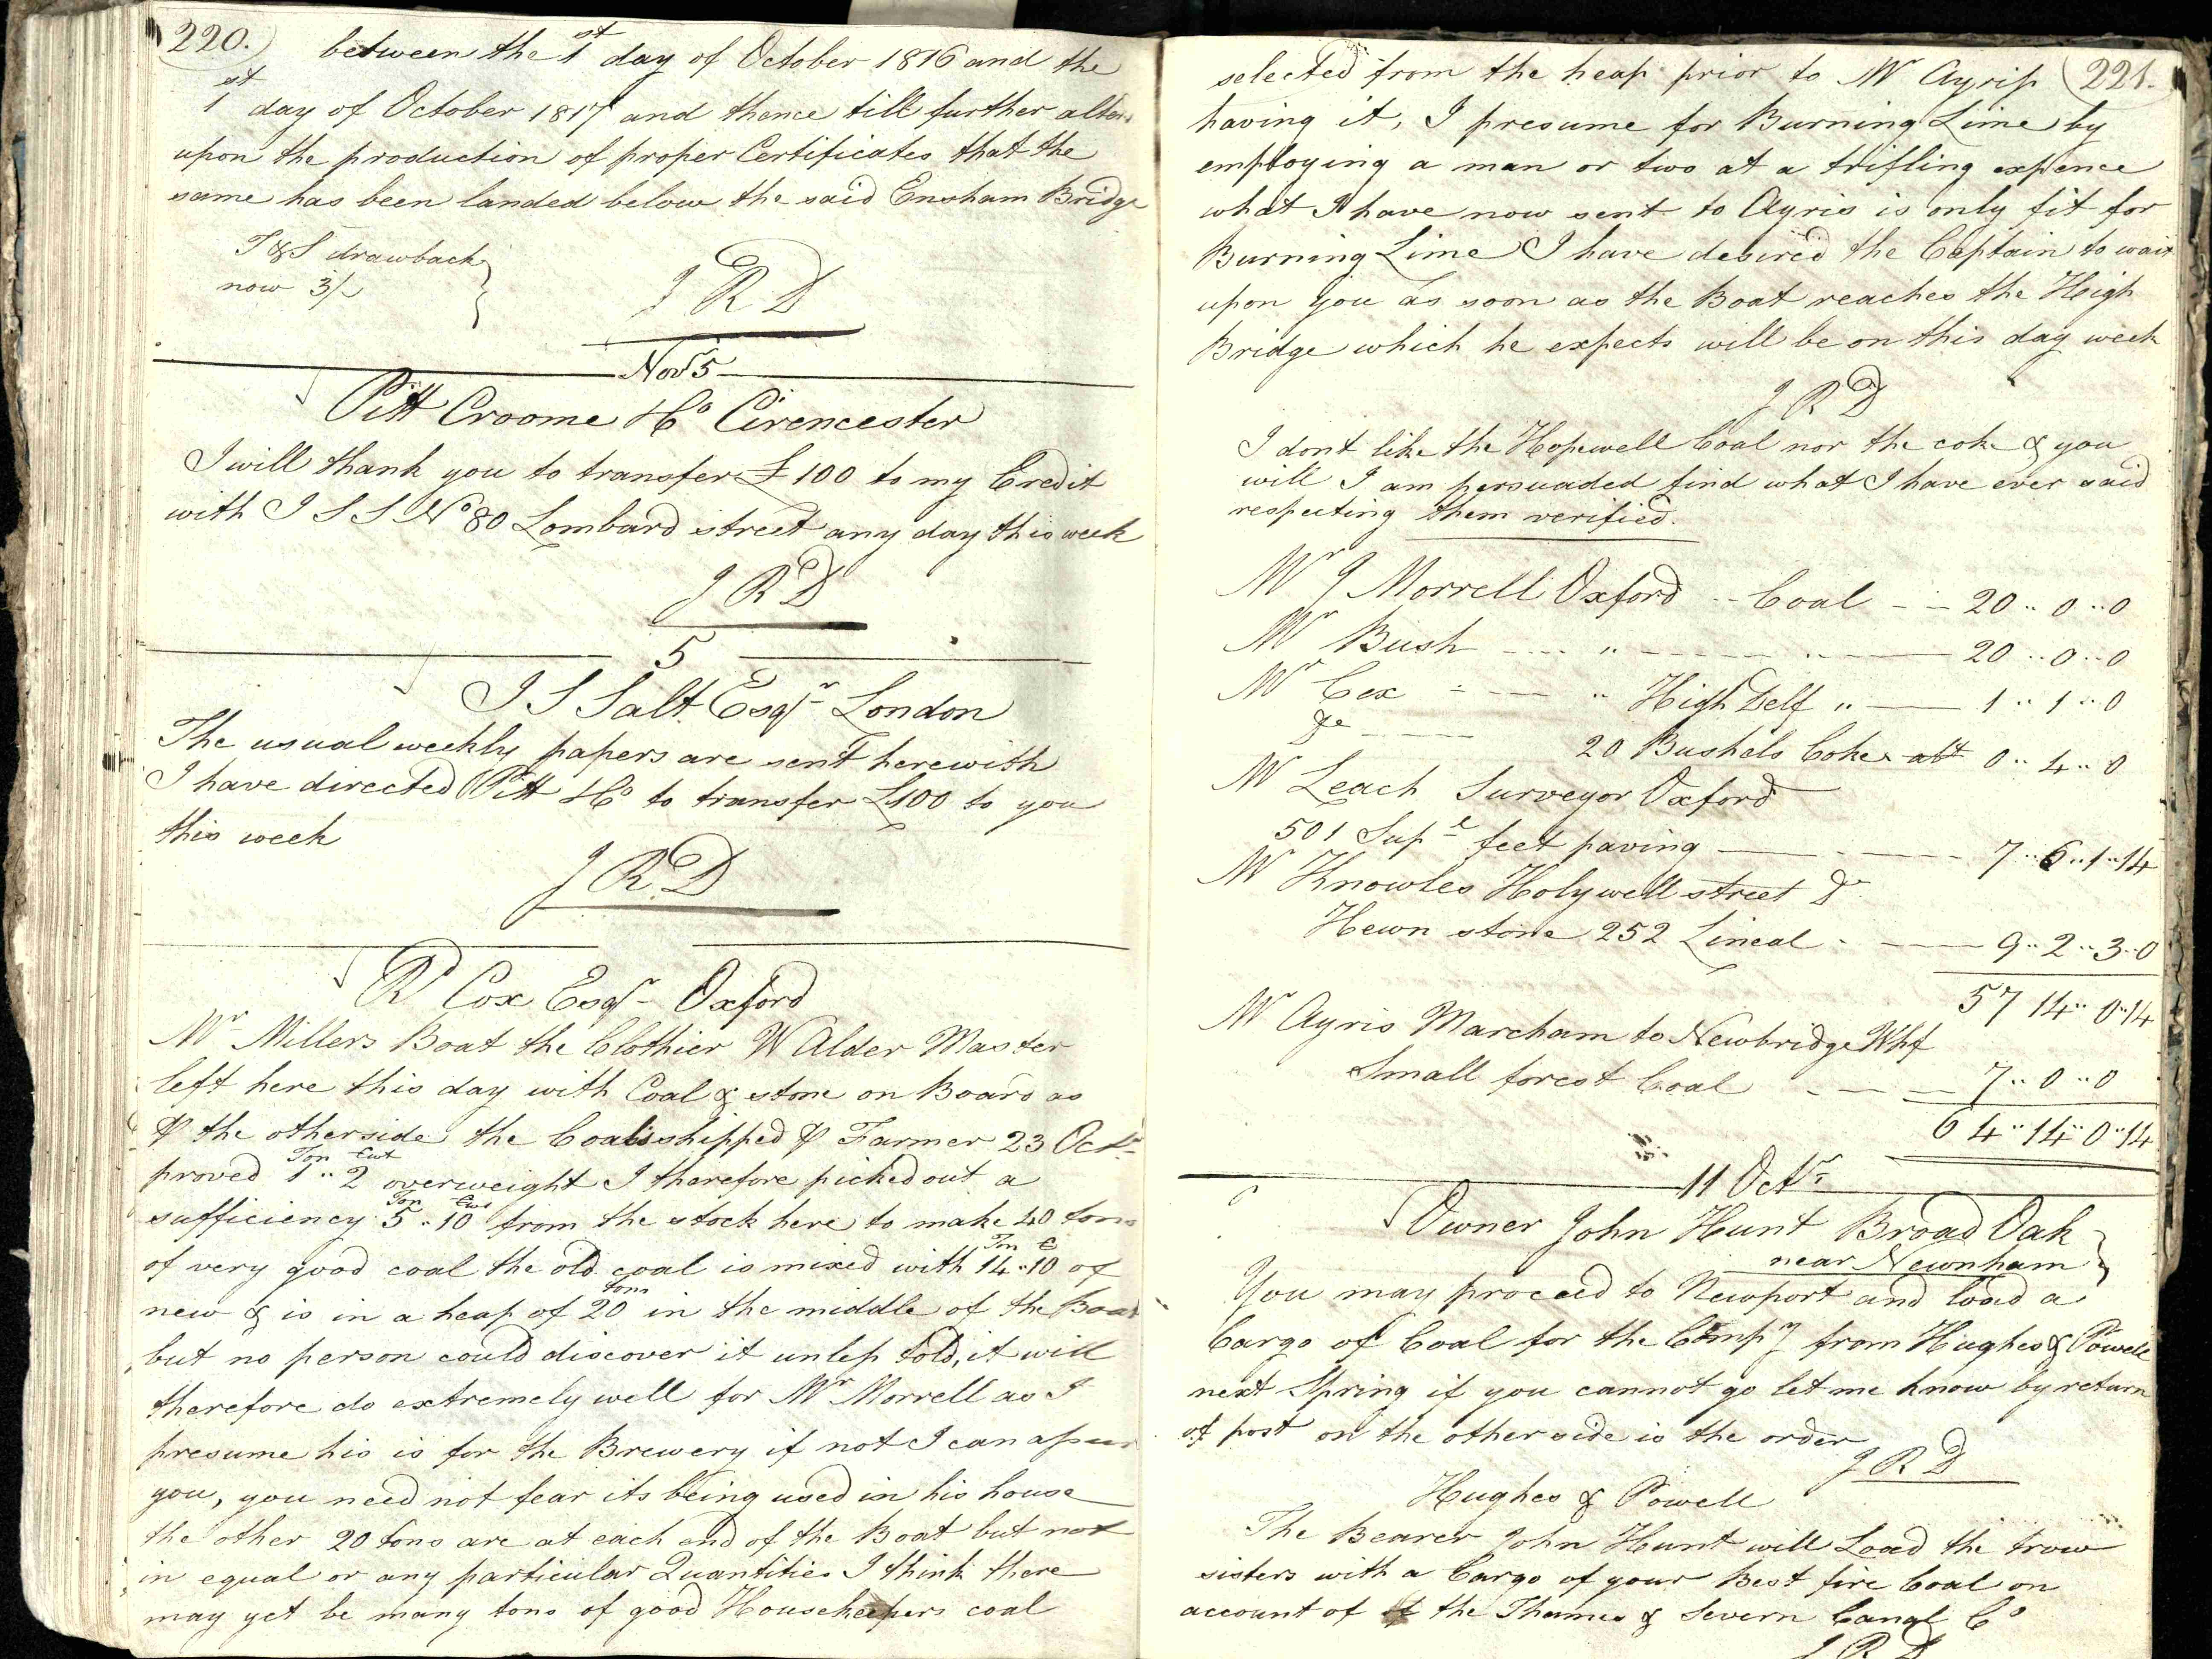 220.
between the 1st day of October 1816 and the
1st day of October 1817 and thence till further alter
upon the production of proper Certificates that the
same has been landed below the said Ensham Bridge
T & S drawback
now 3/-
J R D
Nov 5
Pitt Croome & Co Cirencester
I will thank you to transfer £100 to my Credit
with J S S No 80 Lombard street any day this week
J R D
5
J S Salt Esqr London
The usual weekly papers are sent herewith
I have directed Pitt & Co to transfer £100 to you
this week
J R D
Rd Cox Esqr Oxford
Mr Millers Boat the Clothier W Alder Master
left here this day with Coal & stone on Board as
P the otherside the Coal shipped P Farmer 23 Octr
proved 1 Ton .. 2 Cwt overweight I therefore picked out a
sufficiency 5 Ton .. 10 Cwt from the stock here to make 40 tons
of very good coal the old coal is mixed with 14 Ton .. 10 C of
new & is in a heap of 20 tons in the middle of the Boat
but no person could discover it unless told, it will
therefore do extremely well for Mr Morrell as I
presume his is for the Brewery if not I can assure
you, you need not fear its being used in his house
the other 20 tons are at each end of the Boat but not
in equal or any particular Quantities I think there
may yet be many tons of good Housekeepers coal
221.
selected from the heap prior to Mr Ayriss
having it, I presume for Burning Lime by
employing a man or two at a trifling expence
what I have now sent to Ayris is only fit for
Burning Lime I have desired the Captain to wait
upon you as soon as the Boat reaches the Heigh
Bridge which he expects will be on this day week
J R D
I dont like the Hopewell Coal nor the coke & you
will I am persuaded find what I have ever said
respecting them verified.
Mr J Morrell Oxford -- Coal -- 20 .. 0 .. 0
Mr Bush ---- " ---- 20 .. 0 .. 0
Mr Cox ---- " High Delf " -- 1 .. 1 .. 0
Do ---- 20 Bushels Coke abt 0 .. 4 .. 0
Mr Leach Surveyor Oxford
501 Supl feet paving ---- 7 .. 6 .. 1 .. 14
Mr Knowles Holywell street Do
Hewn stone 252 Lineal ---- 9 .. 2 .. 3 .. 0
57 14 .. 0 .. 14
Mr Ayris Marcham to Newbridge Whf
Small forest Coal ---- 7 .. 0 .. 0
64 .. 14 .. 0 .. 14
11 Octr
Owner John Hunt Broad Oak
near Newnham
You may proceed to Newport and load a
Cargo of Coal for the Compy from Hughes & Powell
next Spring if you cannot go let me know by return
of post on the other side is the order
J R D
Hughes & Powell
The Bearer John Hunt will Load the trow
sisters with a Cargo of your Best fire Coal on
account of the Thames & Severn Canal Co
J R D